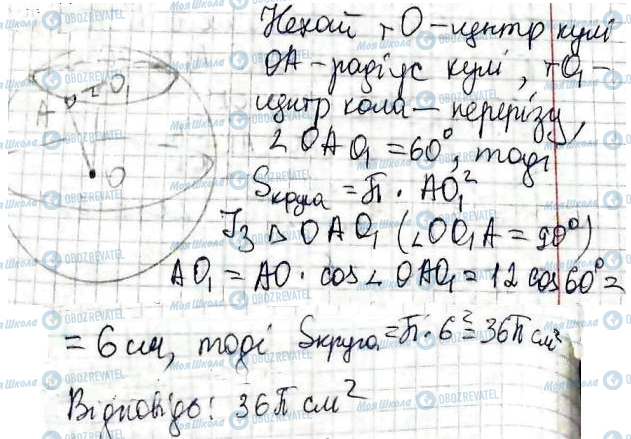 Нехай т O – центр кулі
OA – радіус кулі, т O₁ –
центр кола – перерізу,
∠OAO₁ = 60°, тоді
Sкруга = π · AO₁²
Із △OAO₁ (∠OO₁A = 90°)
AO₁ = AO · cos∠OAO₁ = 12 cos 60° =
= 6 см, тоді Sкруга = π · 6² = 36π см²
Відповідь: 36π см²
A
O₁
O
Моя Школа
OBOZREVATEL